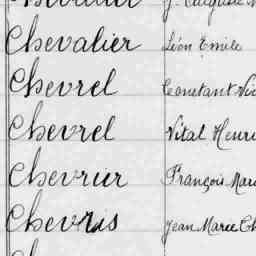 Chevalier Léon Emile
Chevrel Constant
Chevrel Vital Henri
Chevrier François
Chevris Jean Marie